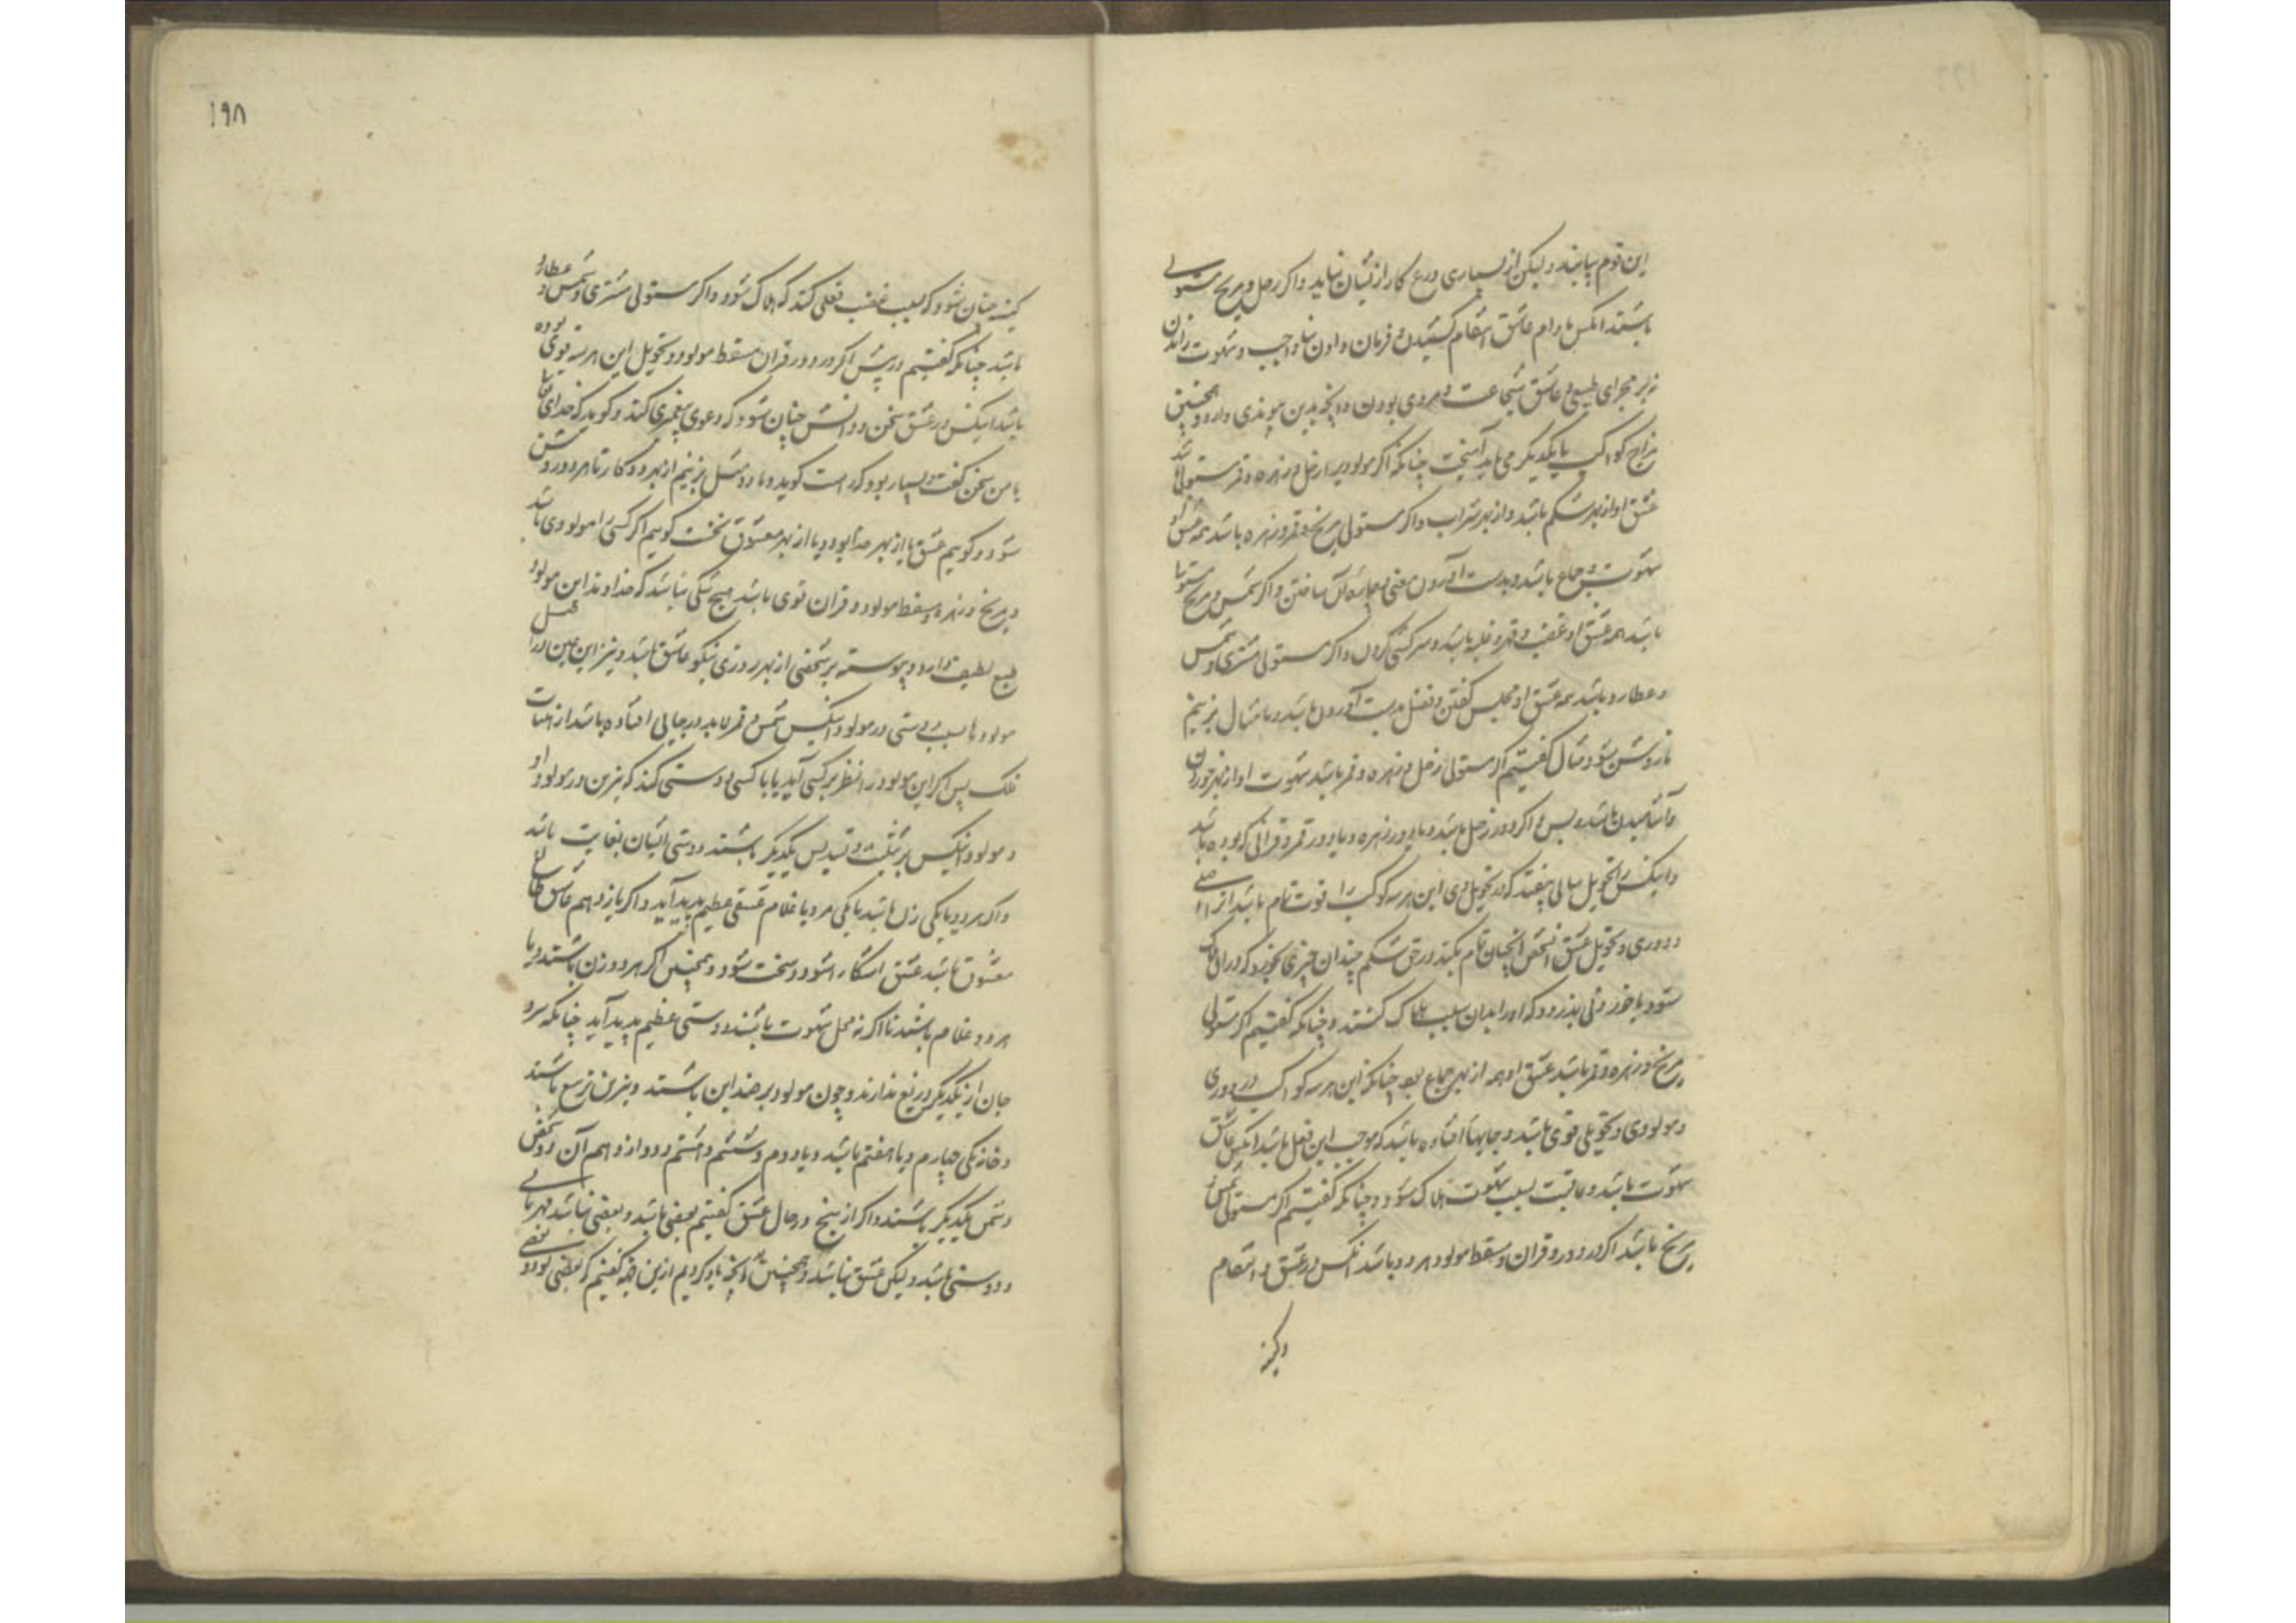 این قوم بیابند ولیکن از بسیاری ورع کار از نشان نیاید و اکر زحل و مریخ مستولی
باشند انکس مادام عاشق انتقام کشیدن و فرمان دادن بناواجب و شهوت راندن
نه بر مجرای طبیعی و عاشق شجاعت و مردی بودن و آنچه بدین پیوندی دارد و همچنین
مزاج کواکب با یکدیکر می باید آمیخت چنانکه اکر مولود بر زحل و زهره و قمر مستولی باشد
عشق او از بهر شکم باشد و از بهر شراب و اکر مستولی مریخ و قمر و زهره باشد همه عشق او
شهوت و جماع باشد و بدست آوردن معنی و ساختن و اکر شمس و مریخ مستولی
باشد همه عشق او غضب و قهر و غلبه باشد و سرکشی کردن و اکر مستولی مشتری و شمس
و عطارد باشد همه عشق او مجلس کفتن و فضل بدست آوردن باشد و ما مثال بزنیم
تا روشن شود مثال کفتیم اکر مستولی زحل و زهره و قمر باشد شهوت او از بهر خوردن
و آشامیدن باشد و بس و اکر دور زحل باشد و یا دور زهره و یا دور قمر و قرانی که بوده باشد
و اینکس را تحویل سالی بیفتد که در تحویل وی این هر سه کوکب را قوت تمام باشد از اصلی
و دوری و تحویل عشق آنشخص آنچنان تمام بکند در حق شکم چندان چیزی بخورد که در آن هلاک
شود یا خوردنی بدزدد که او را بدان سبب هلاک کنند و چنانکه کفتیم اکر مستولی
مریخ و زهره و قمر باشد عشق او همه از بهر جماع بود چنانکه این هر سه کواکب در دوری
و مولودی و تحویلی قوی باشد و جایها افتاده باشد که موجب این فعل باشد انکس عاشق
شهوت باشد و عاقبت بسبب شهوت هلاک شود و چنانکه کفتیم اکر مستولی شمس و
مریخ باشد اکر در دور و قران و مسقط مولود هر دو باشد انکس در عشق و انتقام
و کینه
کینه چنان شود که بسبب غضب فعلی کند که هلاک شود و اکر مستولی مشتری و شمس و عطارد
باشد چنانکه کفتیم در پیش اکر در دور قران و مسقط مولود و تحویل این هر سه قوی بوده
باشد اینکس در عشق سخن و دانش چنان شود که دعوی پیغمبری کند و کوید که خدای تعالی
با من سخن کفت و بسیار بود که راست کوید و ما دو مثل بزنیم از بهر دو کار تا هر دو روشن
شود و کوییم عشق یا از بهر خدا بود و یا از بهر معشوق نخست کوییم اکر کسی را مولودی باشد
و مریخ و زهره و مسقط مولود و قران قوی باشد هیچ شکی نباشد که خداوند این مولود
طبع لطیف دارد و پیوسته بر شخصی از بهر روزی نیکو عاشق باشد و نیز این عین درا قبل
مولودها بسبب دوستی در مولود اینکس شمس و قمر لابد در جایی افتاده باشد از هیئات
فلک پس اکر این مولود را نظر بر کسی آید یا با کسی دوستی کند که نیرین در مولود او
و مولود اینکس بر تثلیث و تسدیس یکدیکر باشند دوستی ایشان بغایت باشد
و اکر هر دو یا یکی زن باشد یا یکی مرد یا غلام عشقی عظیم پدید آید و اکر یازدهم عاشق طالع
معشوق باشد عشق آشکارا شود و سخت شود و همچنین اکر هر دو زن باشند و یا
هر دو غلام باشند تا اکر نه محل شهوت باشند دوستی عظیم پدید آید چنانکه سر و
جان از یکدیکر دریغ ندارند و چون مولود بر ضد این باشند و نیرین تربیع باشند
و خانه یکی چهارم و یا هفتم باشد و یا دوم و ششم و هشتم و دوازدهم آن دو شخص
دشمن یکدیکر باشند و اکر از پنج در حال عشق کفتیم بعضی باشد و بعضی نباشد مهربانی
و دوستی باشد ولیکن عشق نباشد و همچنین هر آنچه یاد کردیم ازین جمله کفتیم که بعضی بود و بعضی
١٩٨